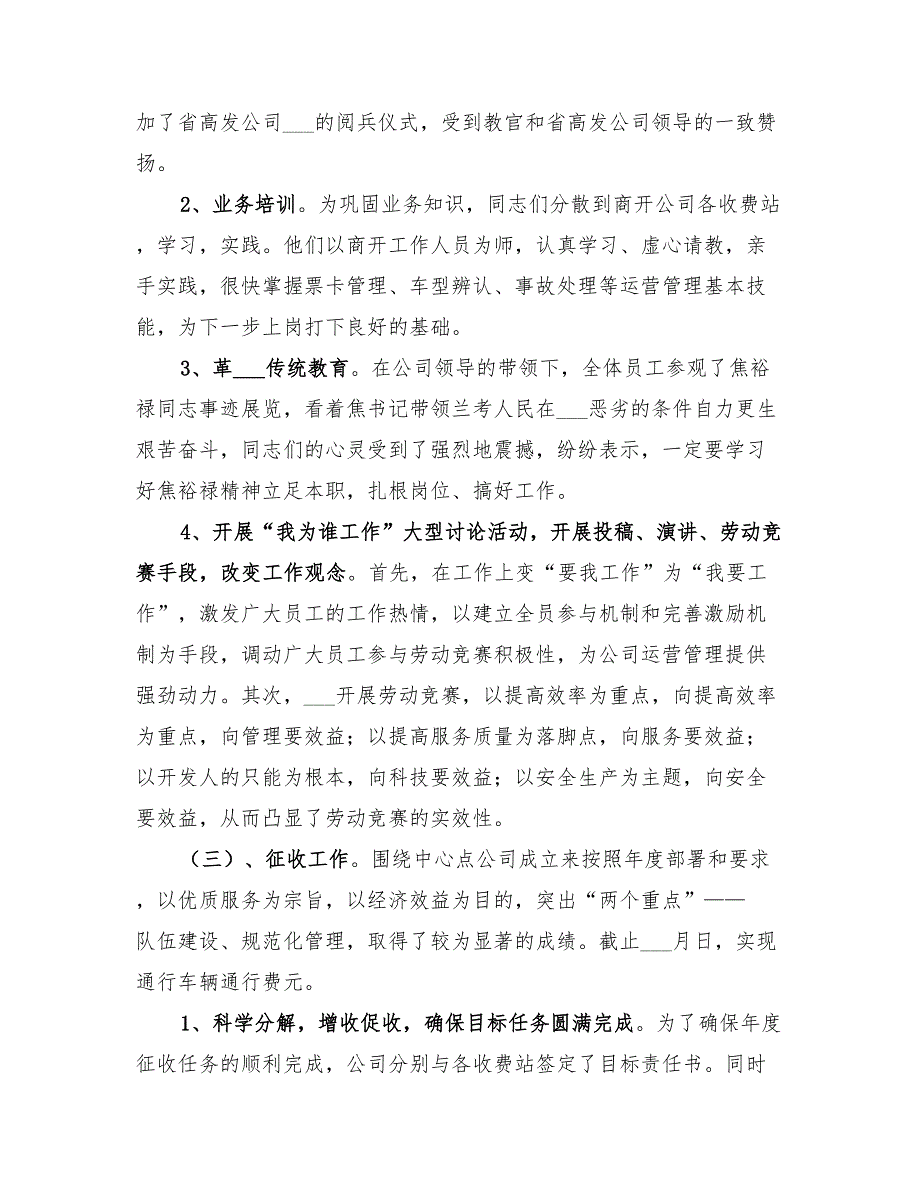 加了省高发公司___的阅兵仪式，受到教官和省高发公司领导的一致赞
扬。
2、业务培训。为巩固业务知识，同志们分散到商开公司各收费站
，学习，实践。他们以商开工作人员为师，认真学习、虚心请教，亲
手实践，很快掌握票卡管理、车型辨认、事故处理等运营管理基本技
能，为下一步上岗打下良好的基础。
3、革___传统教育。在公司领导的带领下，全体员工参观了焦裕
禄同志事迹展览，看着焦书记带领兰考人民在___恶劣的条件自力更生
艰苦奋斗，同志们的心灵受到了强烈地震撼，纷纷表示，一定要学习
好焦裕禄精神立足本职，扎根岗位、搞好工作。
4、开展“我为谁工作”大型讨论活动，开展投稿、演讲、劳动竞
赛手段，改变工作观念。首先，在工作上变“要我工作”为“我要工
作”，激发广大员工的工作热情，以建立全员参与机制和完善激励机
制为手段，调动广大员工参与劳动竞赛积极性，为公司运营管理提供
强劲动力。其次，___开展劳动竞赛，以提高效率为重点，向提高效率
为重点，向管理要效益；以提高服务质量为落脚点，向服务要效益；
以开发人的只能为根本，向科技要效益；以安全生产为主题，向安全
要效益，从而凸显了劳动竞赛的实效性。
（三）、征收工作。围绕中心点公司成立来按照年度部署和要求
，以优质服务为宗旨，以经济效益为目的，突出“两个重点”——
队伍建设、规范化管理，取得了较为显著的成绩。截止___月日，实现
通行车辆通行费元。
1、科学分解，增收促收，确保目标任务圆满完成。为了确保年度
征收任务的顺利完成，公司分别与各收费站签定了目标责任书。同时